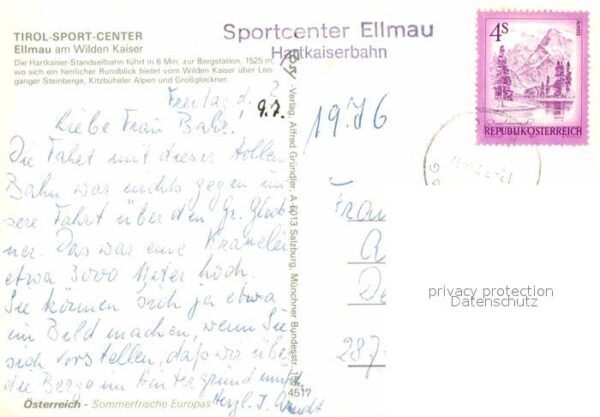 TIROL-SPORT-CENTER
Ellmau am Wilden Kaiser
Die Hartkaiser-Standseilbahn führt in 6 Min. zur Bergstation, 1525 m,
wo sich ein herrlicher Rundblick bietet vom Wilden Kaiser über Leo-
ganger Steinberge, Kitzbüheler Alpen und Großglockner.
Sportcenter Ellmau
Hartkaiserbahn
4S
REPUBLIK ÖSTERREICH
Freitag d.
9.7.
1976
Liebe Frau Bahr!
Die Fahrt mit dieser tollen
Bahn war nichts gegen un
sere Fahrt über den Gr. Glock
ner. Das war eine
etwa 3000 Meter hoch.
Sie können sich ja etwa
ein Bild machen, wenn Sie
sich vorstellen, daß wir über
die Berge im Hintergrund
Herzl. I.
-Verlag, Alfred Gründler, A-5013 Salzburg, Münchner Bundesstr.
4517
Frau
A
De
287
privacy protection
Datenschutz
Österreich - Sommerfrische Europas